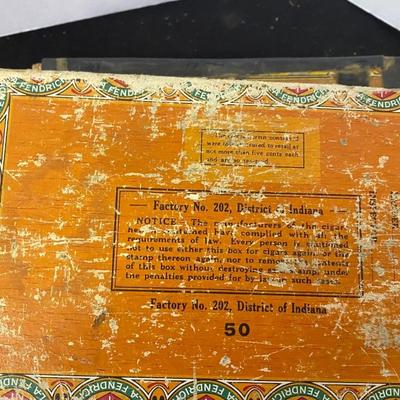 FENDRICH LA FENDRICH LA FENDRICH
The cigars herein contained
were manufactured to retail at
not more than five cents each
and are so taxed.
Factory No. 202, District of Indiana
NOTICE - The manufacturers of the cigars
herein contained have complied with all the
requirements of law. Every person is cautioned
not to use either this box for cigars again, or the
stamp thereon again, nor to remove the contents
of this box without destroying said stamp, under
the penalties provided for by law in such cases.
Factory No. 202, District of Indiana
50
LA FENDRICH LA FENDRICH